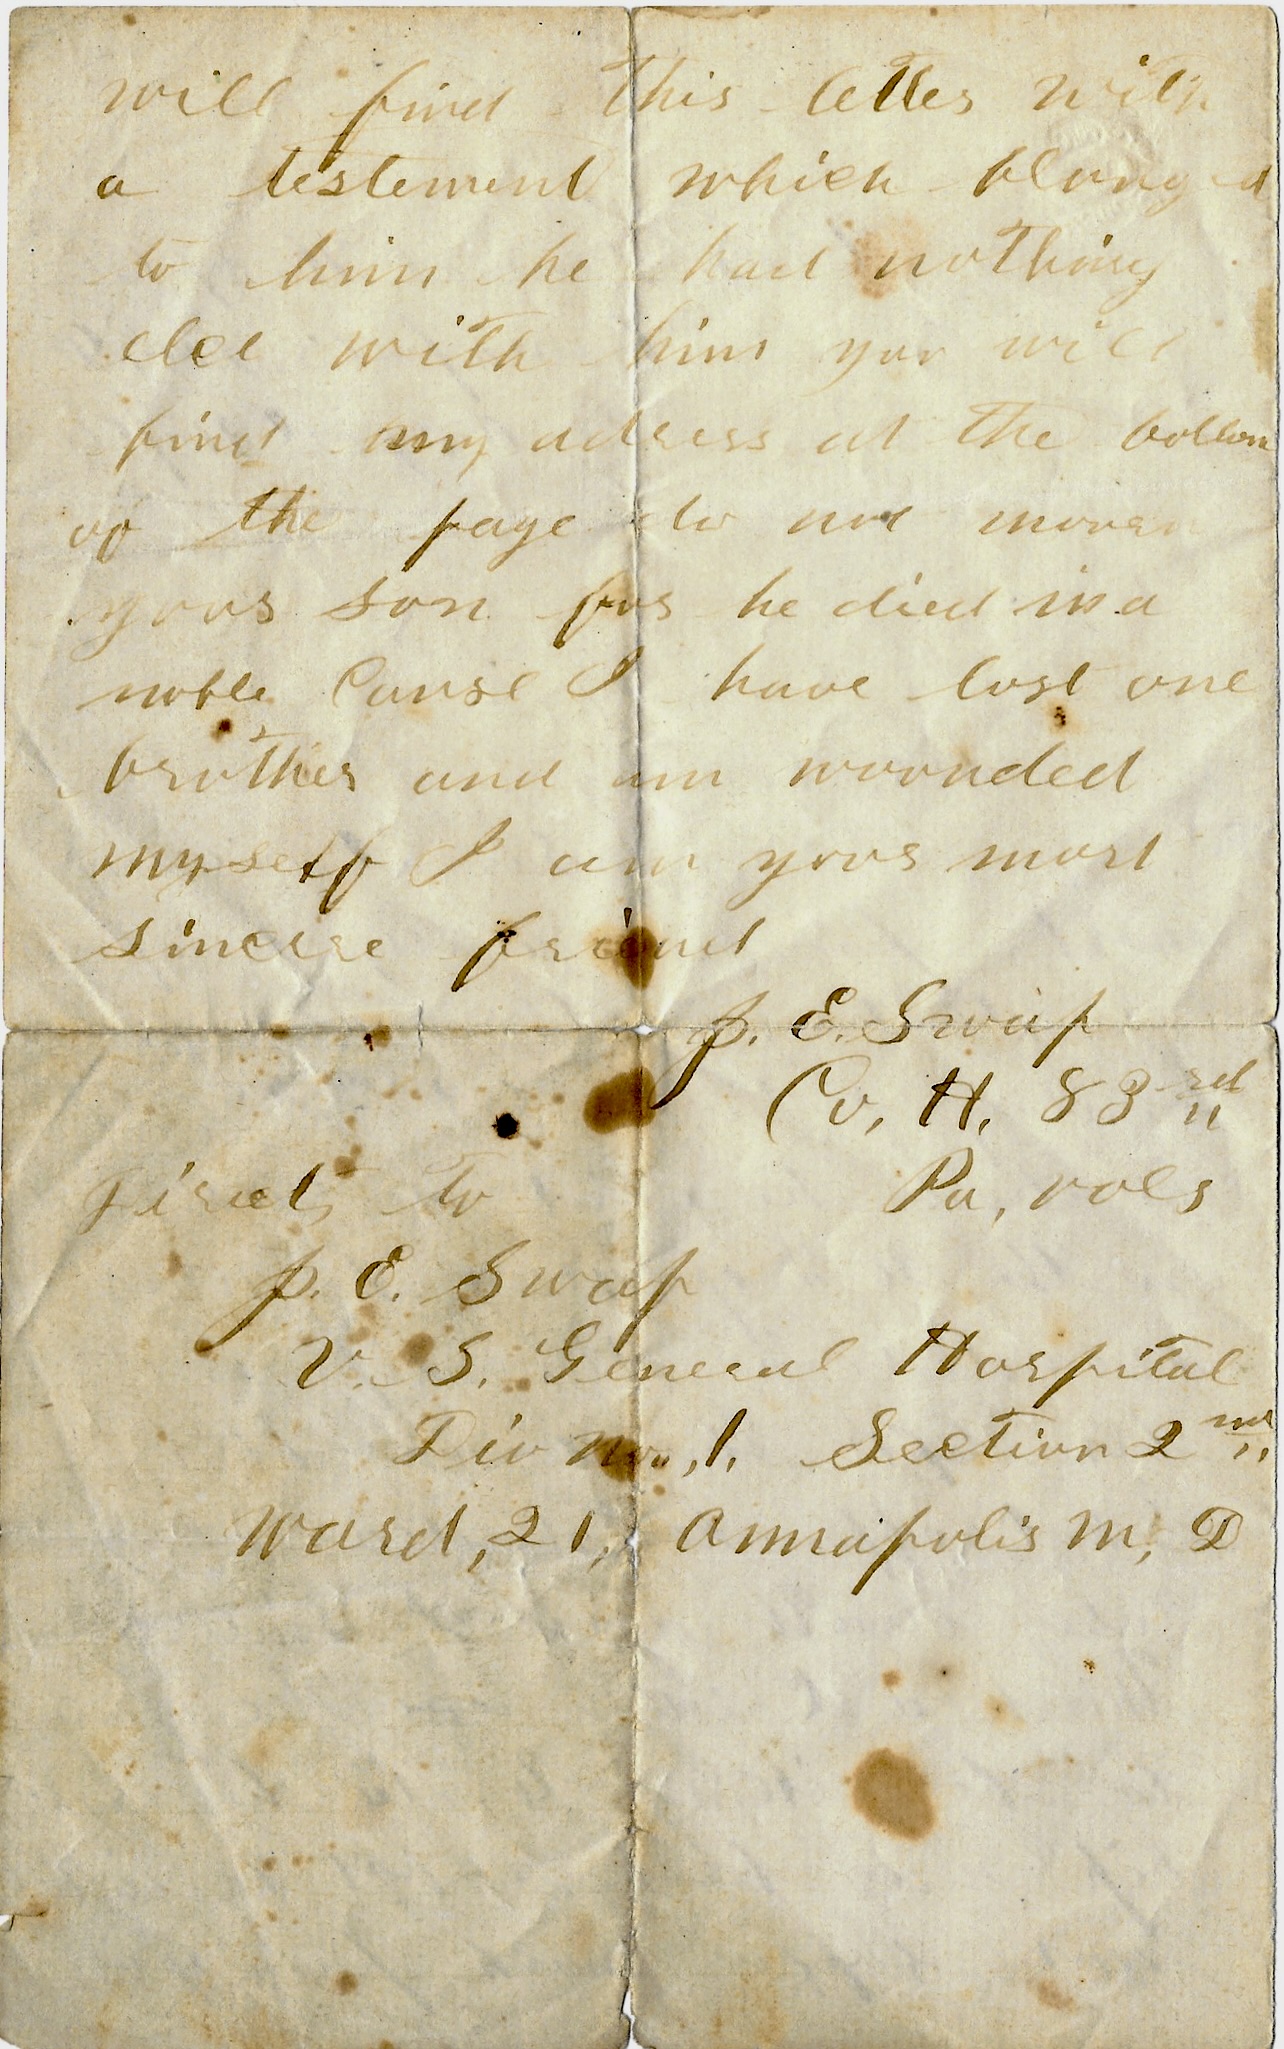 will find this letter with
a testement which blonged
to him he had nothing
elce with him you will
find my adress at the bottom
of the page do not mourn
your son for he died in a
noble Cause I have lost one
brother and am wounded
myself I am yours most
sincere friend
J. E. Swap
Co, H. 83rd
Pa, vols
Direct, to
J. E. Swap
U. S. General Hospital
Div No, 1. Section 2nd
Ward, 21, Annapolis M, D